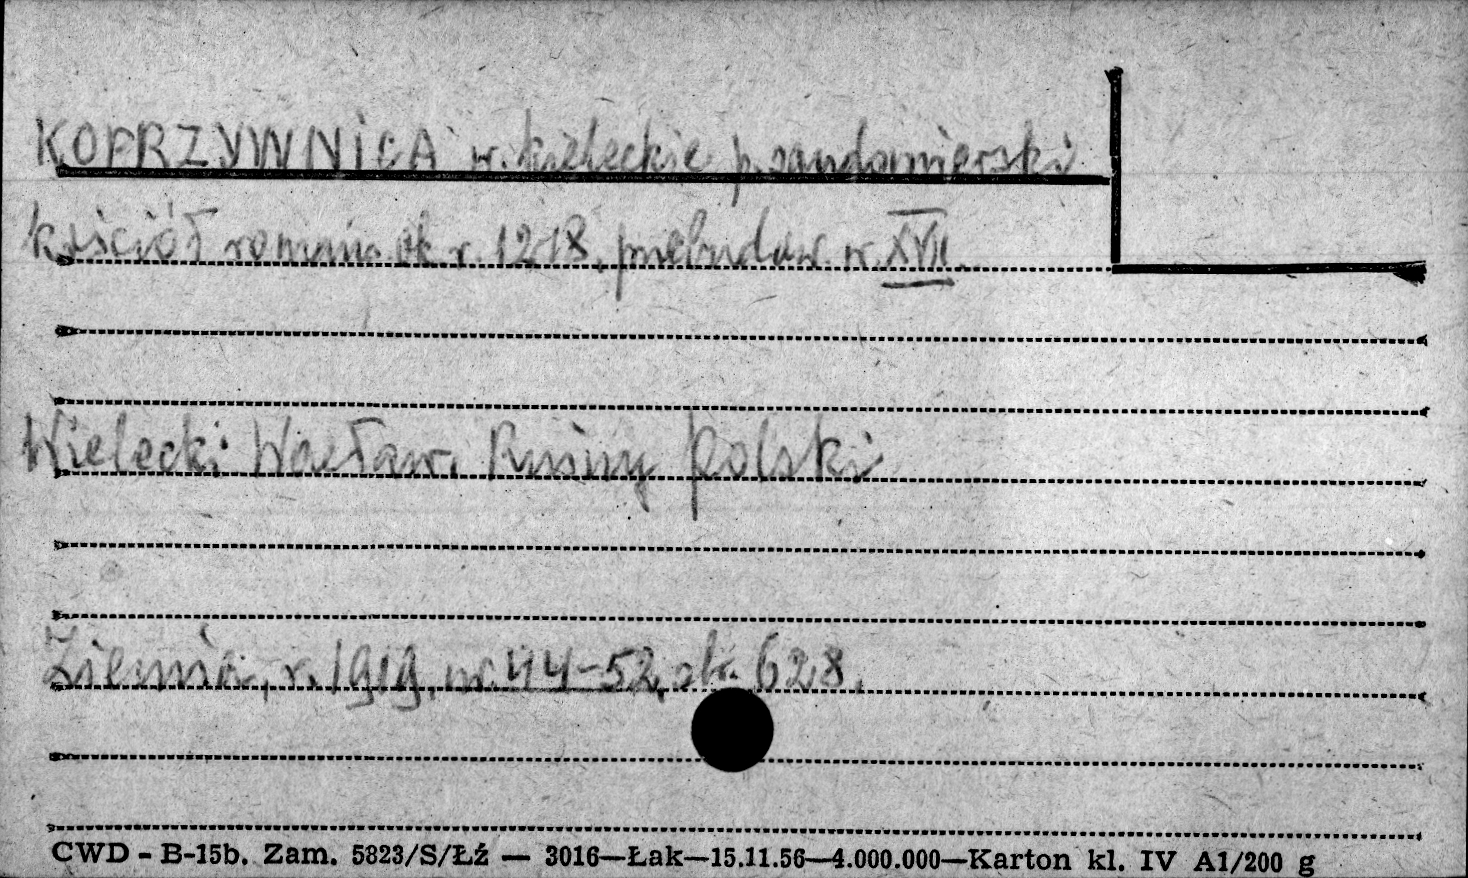 KOPRZYWNICA w. kieleckie p. sandomierski
kościół romańs. ok r. 1218, przebudow. w. XVII.
Wielecki Wacław. Ruiny Polski
Ziemia, r. 1919, nr. 44-52, str. 628.
CWD - B-15b. Zam. 5823/S/Łź — 3016—Łak—15.11.56—4.000.000—Karton kl. IV A1/200 g